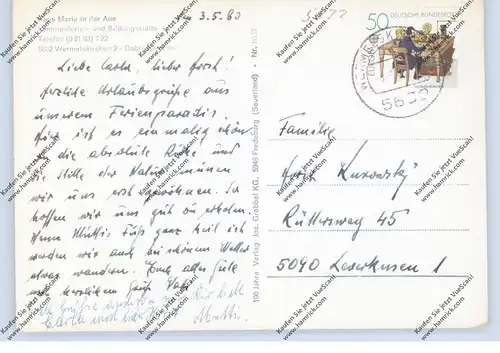 Haus Maria in der Aue
Telefon (0 21 93) 7 22
5632 Wermelskirchen 2 - Dabringhausen
3.5.80
Liebe Carla, lieber Horst!
Herzliche Urlaubsgrüße aus
unserem Ferienparadis.
Hier ist es einmalig schön
die absolute Ruhe und
die Stille der Natur müssen
wir uns erst gewöhnen. So
hoffen wir uns gut zu erholen.
Wenn Muttis Fuß ganz heil ist
werden wir auch bei schönem Wetter
etwas wandern. Euch alles Gute
und herzlichen Gruß Vati
Mutti
100 Jahre Verlag Jos. Grobbel KG, 5948 Fredeburg (Sauerland) · Nr.
50 DEUTSCHE BUNDESPOST
5632
Familie
Horst Kurowsky
Rüttersweg 45
5090 Leverkusen 1
Kaufen Sie jetzt VueScan!
www.hamrick.com